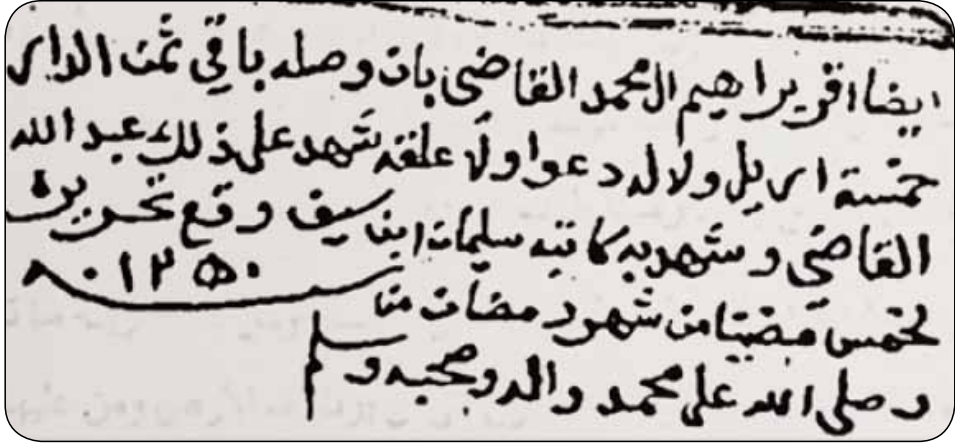 ايضا اقر براهيم المحمد القاضي بان وصله باقي ثمن الدار
خمسة اريل ولا له دعوا ولا علقه شهد على ذلك عبد الله
القاضي وشهد به كاتبه سليمان ابن سيف وقع تحريره
لخمس مضينا من شهر رمضان من سـ١٣٥٠ـنة
وصلى الله على محمد واله وصحبه وسلم